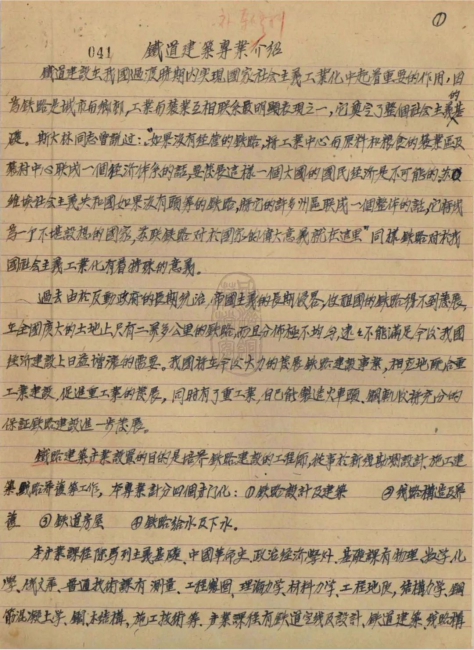 ①
041 鐵道建築專業介紹
鐵道建設在我國過渡時期内实現國家社会主義工業化中起着重要的作用,因
為鉄路是城市与鄉村,工業与農業互相联系最明顯表現之一,它奠定了整個社会主義的基
礎。斯大林同志曾説过:"如果没有經营的鉄路,将工業中心与原料和粮食的農業區及
農村中心联成一個經济体系的話,要發展這樣一個大國的國民經济是不可能的。苏
維埃社会主義共和國如果没有頭等的鉄路,将它的許多州區联成一個整体的話,它将成
為一个不堪設想的國家,苏联鉄路对於國家的偉大意義就在這里"同樣鉄路对於我
國社会主義工業化有着特殊的意義。
过去由於反動政府的長期統治,帝國主義的長期侵畧,使祖國的鉄路得不到發展,
在全國廣大的土地上只有二万多公里的鉄路,而且分佈極不均匀,遠不能滿足今後我國
經济建設上日益增漲的需要。我國将在今後大力的發展鉄路建設事業,相应地配合重
工業建設,促進重工業的發展,同時有了重工業,自己能製造火車頭、鋼軌以将充分的
保証鉄路建設進一步發展。
鉄路建築專業設置的目的是培养鉄路建設的工程師,從事於新线勘測設計、施工建
築、鉄路养護等工作,本專業計分四個專门化:①鉄路設計及建築 ②线路構造及养
護 ③鉄道房屋 ④鉄路給水及下水。
本專業課程除馬列主義基礎、中國革命史、政治經济學外,基礎課有物理、数学、化
學、俄文等,普通技術課有測量、工程製图、理論力学、材料力学、工程地質、結構力学、鋼
筋混凝土学、鋼、木結構、施工技術等,專業課程有鉄道定线及設計、鉄道建築、线路構